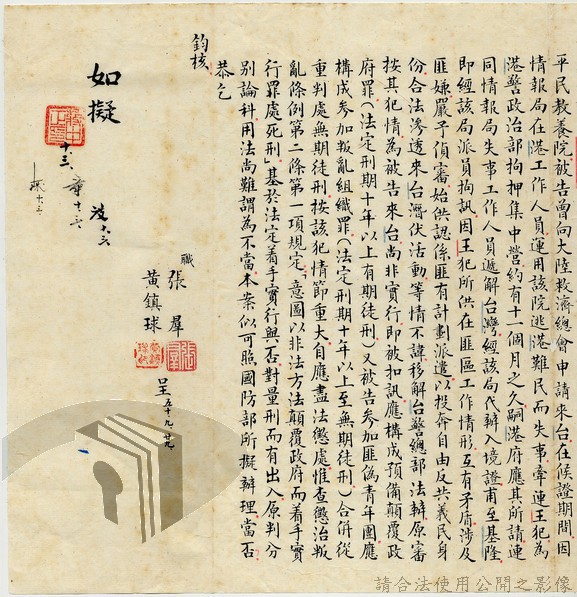 平民教養院被告曾向大陸救濟總會申請來台在候證期間因
情報局在港工作人員運用該院逃港難民而失事牽連王犯為
港警政治部拘押集中營約有十一個月之久嗣港府應其所請連
同情報局失事工作人員遞解台灣經該局代辦入境證甫至基隆
即經該局派員拘訊因王犯所供在匪區工作情形互有矛盾涉及
匪嫌嚴予偵審始供認係匪有計劃派遣以投奔自由反共義民身
份合法滲透來台潛伏活動等情不諱移解台警總部法辦原審
按其犯情為被告來台尚非實行即被扣訊應構成預備顛覆政
府罪(法定刑期十年以上有期徒刑)又被告參加匪偽青年團應
構成參加叛亂組織罪(法定刑期十年以上至無期徒刑)合併從
重判處無期徒刑按該犯情節重大自應盡法懲處惟查懲治叛
亂條例第二條第一項規定「意圖以非法方法顛覆政府而着手實
行罪處死刑」基於法定着手實行與否對量刑而有出入原判分
別論科用法尚難謂為不當本案似可照國防部所擬辦理當否
恭乞
鈞核
職 張羣
黃鎮球
呈 五十九、廿九
如擬
蔣中正印
十三、
請合法使用公開之影像